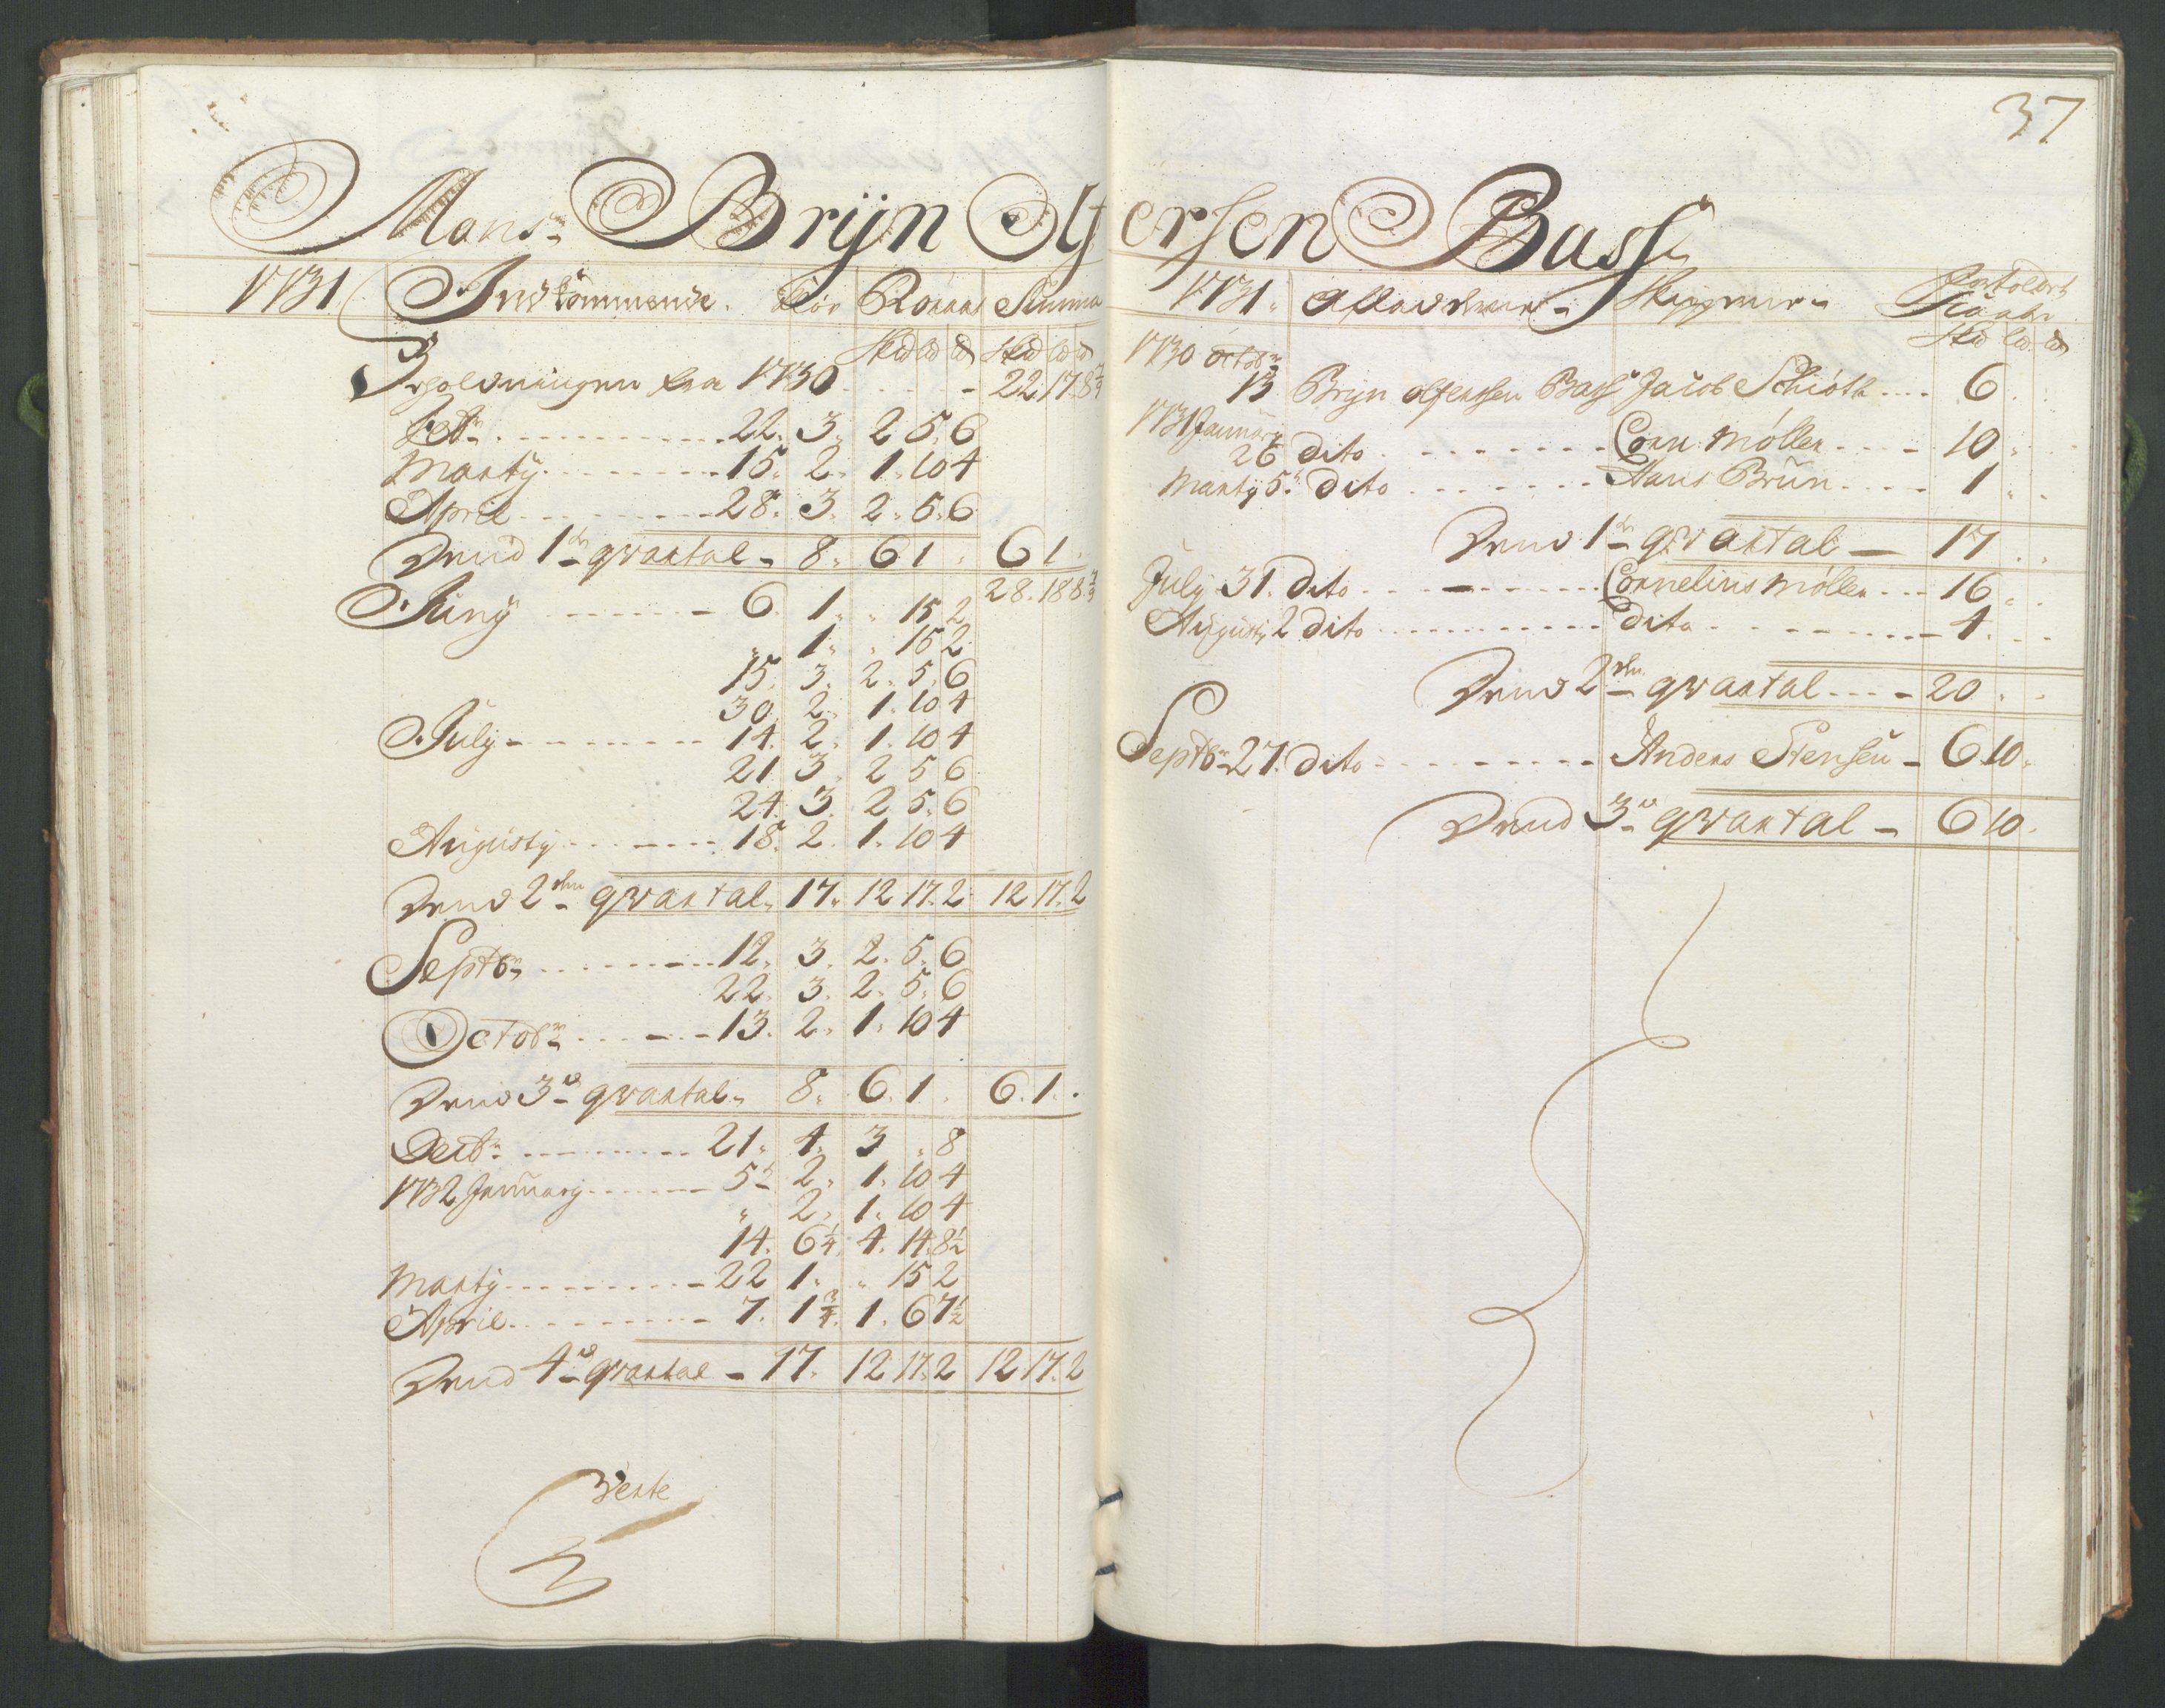 37
Mons:r Brÿn Olfersen Bass
1731 Indkommende. Tdr Roxxxx Summa
Skld ld td Skld ld td
Beholdningen fra 1730 - 22. 17. 8 7/9
Feb: 22. 3. 2 5. 6
Martÿ 15. 2. 1. 10 4
April 28. 3. 2. 5. 6
Dend 1te qvartal - 8. 6 1. 6 1.
28. 18 8 7/9
Junÿ 6. 1. . 15 2
" 1. . 15 2.
15. 3. 2. 5. 6
30. 2. 1. 10 4
Julÿ 14. 2. 1. 10 4
21. 3. 2 5 6
24. 3. 2 5. 6
Augustÿ 18. 2. 1. 10 4
Dend 2den qvartal. 17. 12 17. 2 12 17. 2
Septbr 12. 3. 2. 5. 6
22. 3. 2. 5. 6
Octobr 13. 2. 1. 10 4
Dend 3d qvartal. 8. 6. 1. 6. 1.
Decbr 21. 4. 3 . 8
1732 Januarÿ 5t 2. 1. 10 4
" 2. 1. 10 4
14. 6 1/4. 4. 14. 8 1/2
Martÿ 22 1. " 15 2
April 7. 1 3/4. 1. 6 7 1/2
Dend 4d qvartal - 17. 12 17. 2 12 17. 2
Verte
1731. Skipperne
Skld ld. td
1730 Octobr
13 Brÿn olfersen Bass Jacob Schiöth 6
1731 Januarÿ
26 Dito Corn: Möller 10
Martÿ 5t Dito Hans Brün 1
Dend 1te qvartal 17
Julÿ 31. Dito Cornelius Möller 16
Augustÿ 2 Dito Dito 4
Dend 2den qvartal 20
Septbr 27. Dito Anders Stensen 6 10.
Dend 3d qvartal 6 10.